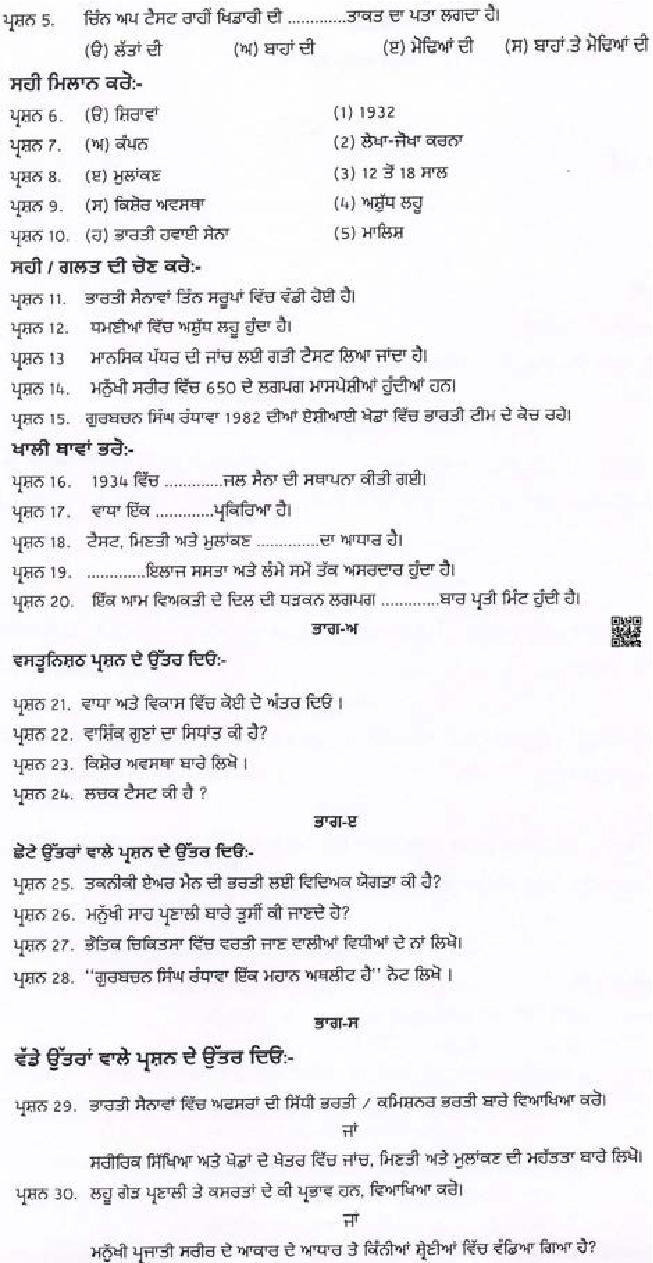 ਪ੍ਰਸ਼ਨ 5. ਚਿੰਨ ਅਪ ਟੈਸਟ ਰਾਹੀਂ ਖਿਡਾਰੀ ਦੀ ............ਤਾਕਤ ਦਾ ਪਤਾ ਲਗਦਾ ਹੈ।
(ੳ) ਲੱਤਾਂ ਦੀ (ਅ) ਬਾਹਾਂ ਦੀ (ੲ) ਮੋਢਿਆਂ ਦੀ (ਸ) ਬਾਹਾਂ ਤੇ ਮੋਢਿਆਂ ਦੀ
ਸਹੀ ਮਿਲਾਨ ਕਰੋ:-
ਪ੍ਰਸ਼ਨ 6. (ੳ) ਸ਼ਿਰਾਵਾਂ (1) 1932
ਪ੍ਰਸ਼ਨ 7. (ਅ) ਕੰਪਨ (2) ਲੇਖਾ-ਜੋਖਾ ਕਰਨਾ
ਪ੍ਰਸ਼ਨ 8. (ੲ) ਮੁਲਾਂਕਣ (3) 12 ਤੋਂ 18 ਸਾਲ
ਪ੍ਰਸ਼ਨ 9. (ਸ) ਕਿਸ਼ੋਰ ਅਵਸਥਾ (4) ਅਸ਼ੁੱਧ ਲਹੂ
ਪ੍ਰਸ਼ਨ 10. (ਹ) ਭਾਰਤੀ ਹਵਾਈ ਸੈਨਾ (5) ਮਾਲਿਸ਼
ਸਹੀ / ਗਲਤ ਦੀ ਚੋਣ ਕਰੋ:-
ਪ੍ਰਸ਼ਨ 11. ਭਾਰਤੀ ਸੈਨਾਵਾਂ ਤਿੰਨ ਸਰੂਪਾਂ ਵਿੱਚ ਵੰਡੀ ਹੋਈ ਹੈ।
ਪ੍ਰਸ਼ਨ 12. ਧਮਣੀਆਂ ਵਿੱਚ ਅਸ਼ੁੱਧ ਲਹੂ ਹੁੰਦਾ ਹੈ।
ਪ੍ਰਸ਼ਨ 13 ਮਾਨਸਿਕ ਪੱਧਰ ਦੀ ਜਾਂਚ ਲਈ ਗਤੀ ਟੈਸਟ ਲਿਆ ਜਾਂਦਾ ਹੈ।
ਪ੍ਰਸ਼ਨ 14. ਮਨੁੱਖੀ ਸਰੀਰ ਵਿੱਚ 650 ਦੇ ਲਗਪਗ ਮਾਸਪੇਸ਼ੀਆਂ ਹੁੰਦੀਆਂ ਹਨ।
ਪ੍ਰਸ਼ਨ 15. ਗੁਰਬਚਨ ਸਿੰਘ ਰੰਧਾਵਾ 1982 ਦੀਆਂ ਏਸ਼ੀਆਈ ਖੇਡਾਂ ਵਿੱਚ ਭਾਰਤੀ ਟੀਮ ਦੇ ਕੋਚ ਰਹੇ।
ਖਾਲੀ ਥਾਵਾਂ ਭਰੋ:-
ਪ੍ਰਸ਼ਨ 16. 1934 ਵਿੱਚ ............ਜਲ ਸੈਨਾ ਦੀ ਸਥਾਪਨਾ ਕੀਤੀ ਗਈ।
ਪ੍ਰਸ਼ਨ 17. ਵਾਧਾ ਇੱਕ ............ਪ੍ਰਕਿਰਿਆ ਹੈ।
ਪ੍ਰਸ਼ਨ 18. ਟੈਸਟ, ਮਿਣਤੀ ਅਤੇ ਮੁਲਾਂਕਣ ............ਦਾ ਆਧਾਰ ਹੈ।
ਪ੍ਰਸ਼ਨ 19. ............ਇਲਾਜ ਸਸਤਾ ਅਤੇ ਲੰਮੇ ਸਮੇਂ ਤੱਕ ਅਸਰਦਾਰ ਹੁੰਦਾ ਹੈ।
ਪ੍ਰਸ਼ਨ 20. ਇੱਕ ਆਮ ਵਿਅਕਤੀ ਦੇ ਦਿਲ ਦੀ ਧੜਕਨ ਲਗਪਗ ............ਬਾਰ ਪ੍ਰਤੀ ਮਿੰਟ ਹੁੰਦੀ ਹੈ।
ਭਾਗ-ਅ
ਵਸਤੂਨਿਸ਼ਠ ਪ੍ਰਸ਼ਨ ਦੇ ਉੱਤਰ ਦਿਓ:-
ਪ੍ਰਸ਼ਨ 21. ਵਾਧਾ ਅਤੇ ਵਿਕਾਸ ਵਿੱਚ ਕੋਈ ਦੋ ਅੰਤਰ ਦਿਓ ।
ਪ੍ਰਸ਼ਨ 22. ਵਾਸ਼ਿੰਕ ਗੁਣਾਂ ਦਾ ਸਿਧਾਂਤ ਕੀ ਹੈ?
ਪ੍ਰਸ਼ਨ 23. ਕਿਸ਼ੋਰ ਅਵਸਥਾ ਬਾਰੇ ਲਿਖੋ ।
ਪ੍ਰਸ਼ਨ 24. ਲਚਕ ਟੈਸਟ ਕੀ ਹੈ ?
ਭਾਗ-ੲ
ਛੋਟੇ ਉੱਤਰਾਂ ਵਾਲੇ ਪ੍ਰਸ਼ਨ ਦੇ ਉੱਤਰ ਦਿਓ:-
ਪ੍ਰਸ਼ਨ 25. ਤਕਨੀਕੀ ਏਅਰ ਮੈਨ ਦੀ ਭਰਤੀ ਲਈ ਵਿਦਿਅਕ ਯੋਗਤਾ ਕੀ ਹੈ?
ਪ੍ਰਸ਼ਨ 26. ਮਨੁੱਖੀ ਸਾਹ ਪ੍ਰਣਾਲੀ ਬਾਰੇ ਤੁਸੀਂ ਕੀ ਜਾਣਦੇ ਹੋ?
ਪ੍ਰਸ਼ਨ 27. ਭੌਤਿਕ ਚਿਕਿਤਸਾ ਵਿੱਚ ਵਰਤੀ ਜਾਣ ਵਾਲੀਆਂ ਵਿਧੀਆਂ ਦੇ ਨਾਂ ਲਿਖੋ।
ਪ੍ਰਸ਼ਨ 28. "ਗੁਰਬਚਨ ਸਿੰਘ ਰੰਧਾਵਾ ਇੱਕ ਮਹਾਨ ਅਥਲੀਟ ਹੈ" ਨੋਟ ਲਿਖੋ ।
ਭਾਗ-ਸ
ਵੱਡੇ ਉੱਤਰਾਂ ਵਾਲੇ ਪ੍ਰਸ਼ਨ ਦੇ ਉੱਤਰ ਦਿਓ:-
ਪ੍ਰਸ਼ਨ 29. ਭਾਰਤੀ ਸੈਨਾਵਾਂ ਵਿੱਚ ਅਫਸਰਾਂ ਦੀ ਸਿੱਧੀ ਭਰਤੀ / ਕਮਿਸ਼ਨਰ ਭਰਤੀ ਬਾਰੇ ਵਿਆਖਿਆ ਕਰੋ।
ਜਾਂ
ਸਰੀਰਿਕ ਸਿੱਖਿਆ ਅਤੇ ਖੇਡਾਂ ਦੇ ਖੇਤਰ ਵਿੱਚ ਜਾਂਚ, ਮਿਣਤੀ ਅਤੇ ਮੁਲਾਂਕਣ ਦੀ ਮਹੱਤਤਾ ਬਾਰੇ ਲਿਖੋ।
ਪ੍ਰਸ਼ਨ 30. ਲਹੂ ਗੇੜ ਪ੍ਰਣਾਲੀ ਤੇ ਕਸਰਤਾਂ ਦੇ ਕੀ ਪ੍ਰਭਾਵ ਹਨ, ਵਿਆਖਿਆ ਕਰੋ।
ਜਾਂ
ਮਨੁੱਖੀ ਪ੍ਰਜਾਤੀ ਸਰੀਰ ਦੇ ਆਕਾਰ ਦੇ ਅਧਾਰ ਤੇ ਕਿੰਨੀਆਂ ਸ਼੍ਰੇਣੀਆਂ ਵਿੱਚ ਵੰਡਿਆ ਗਿਆ ਹੈ?